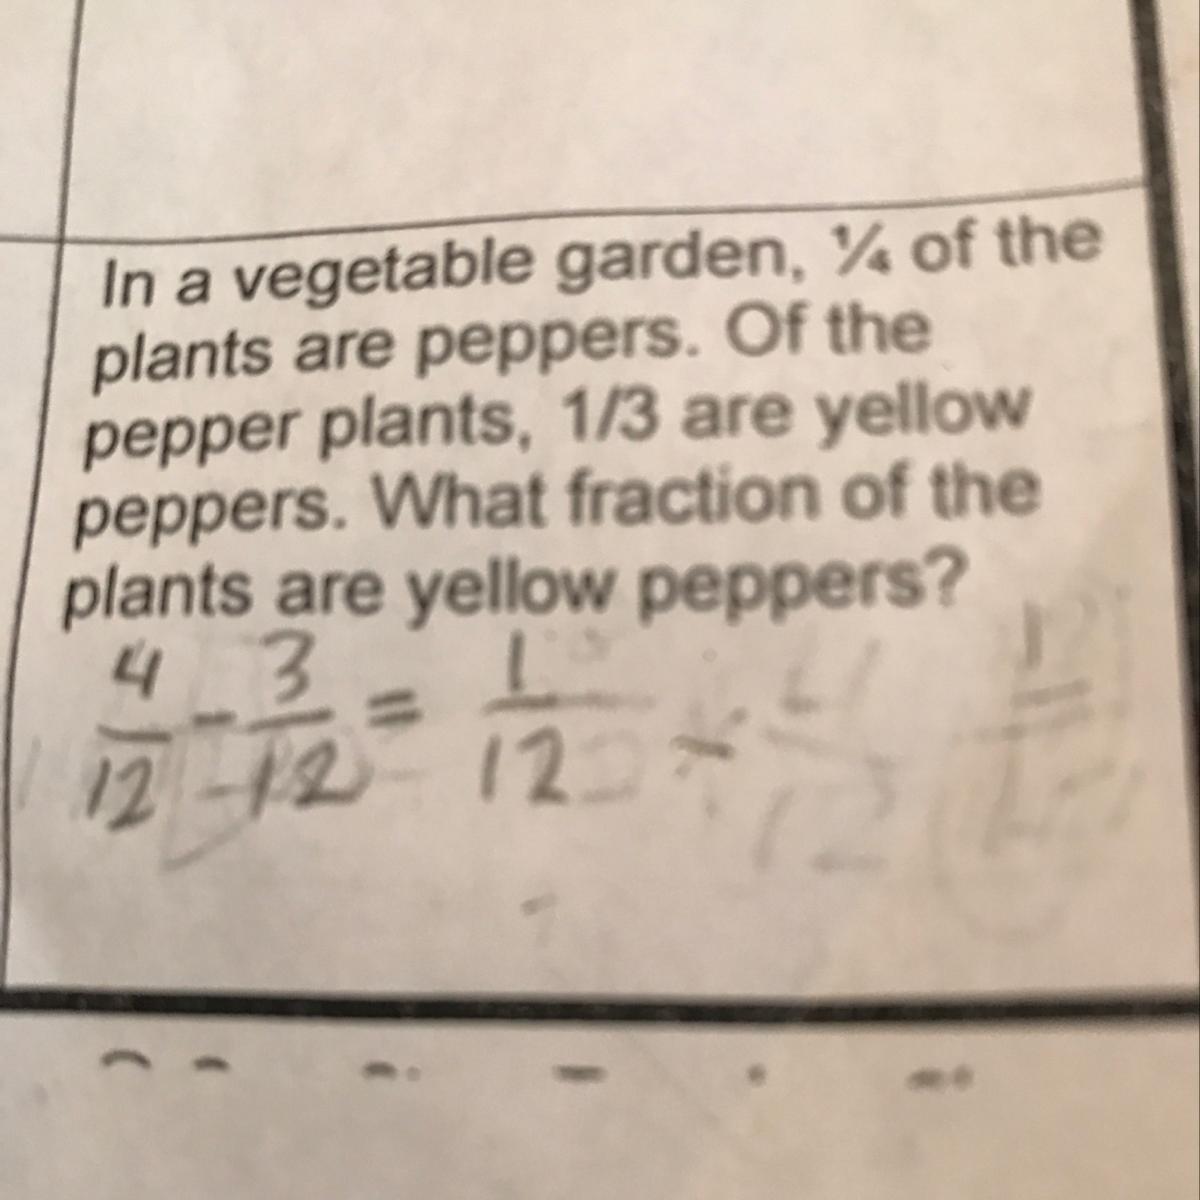 In a vegetable garden, ¼ of the
plants are peppers. Of the
pepper plants, 1/3 are yellow
peppers. What fraction of the
plants are yellow peppers?
4/12 - 3/12 = 1/12